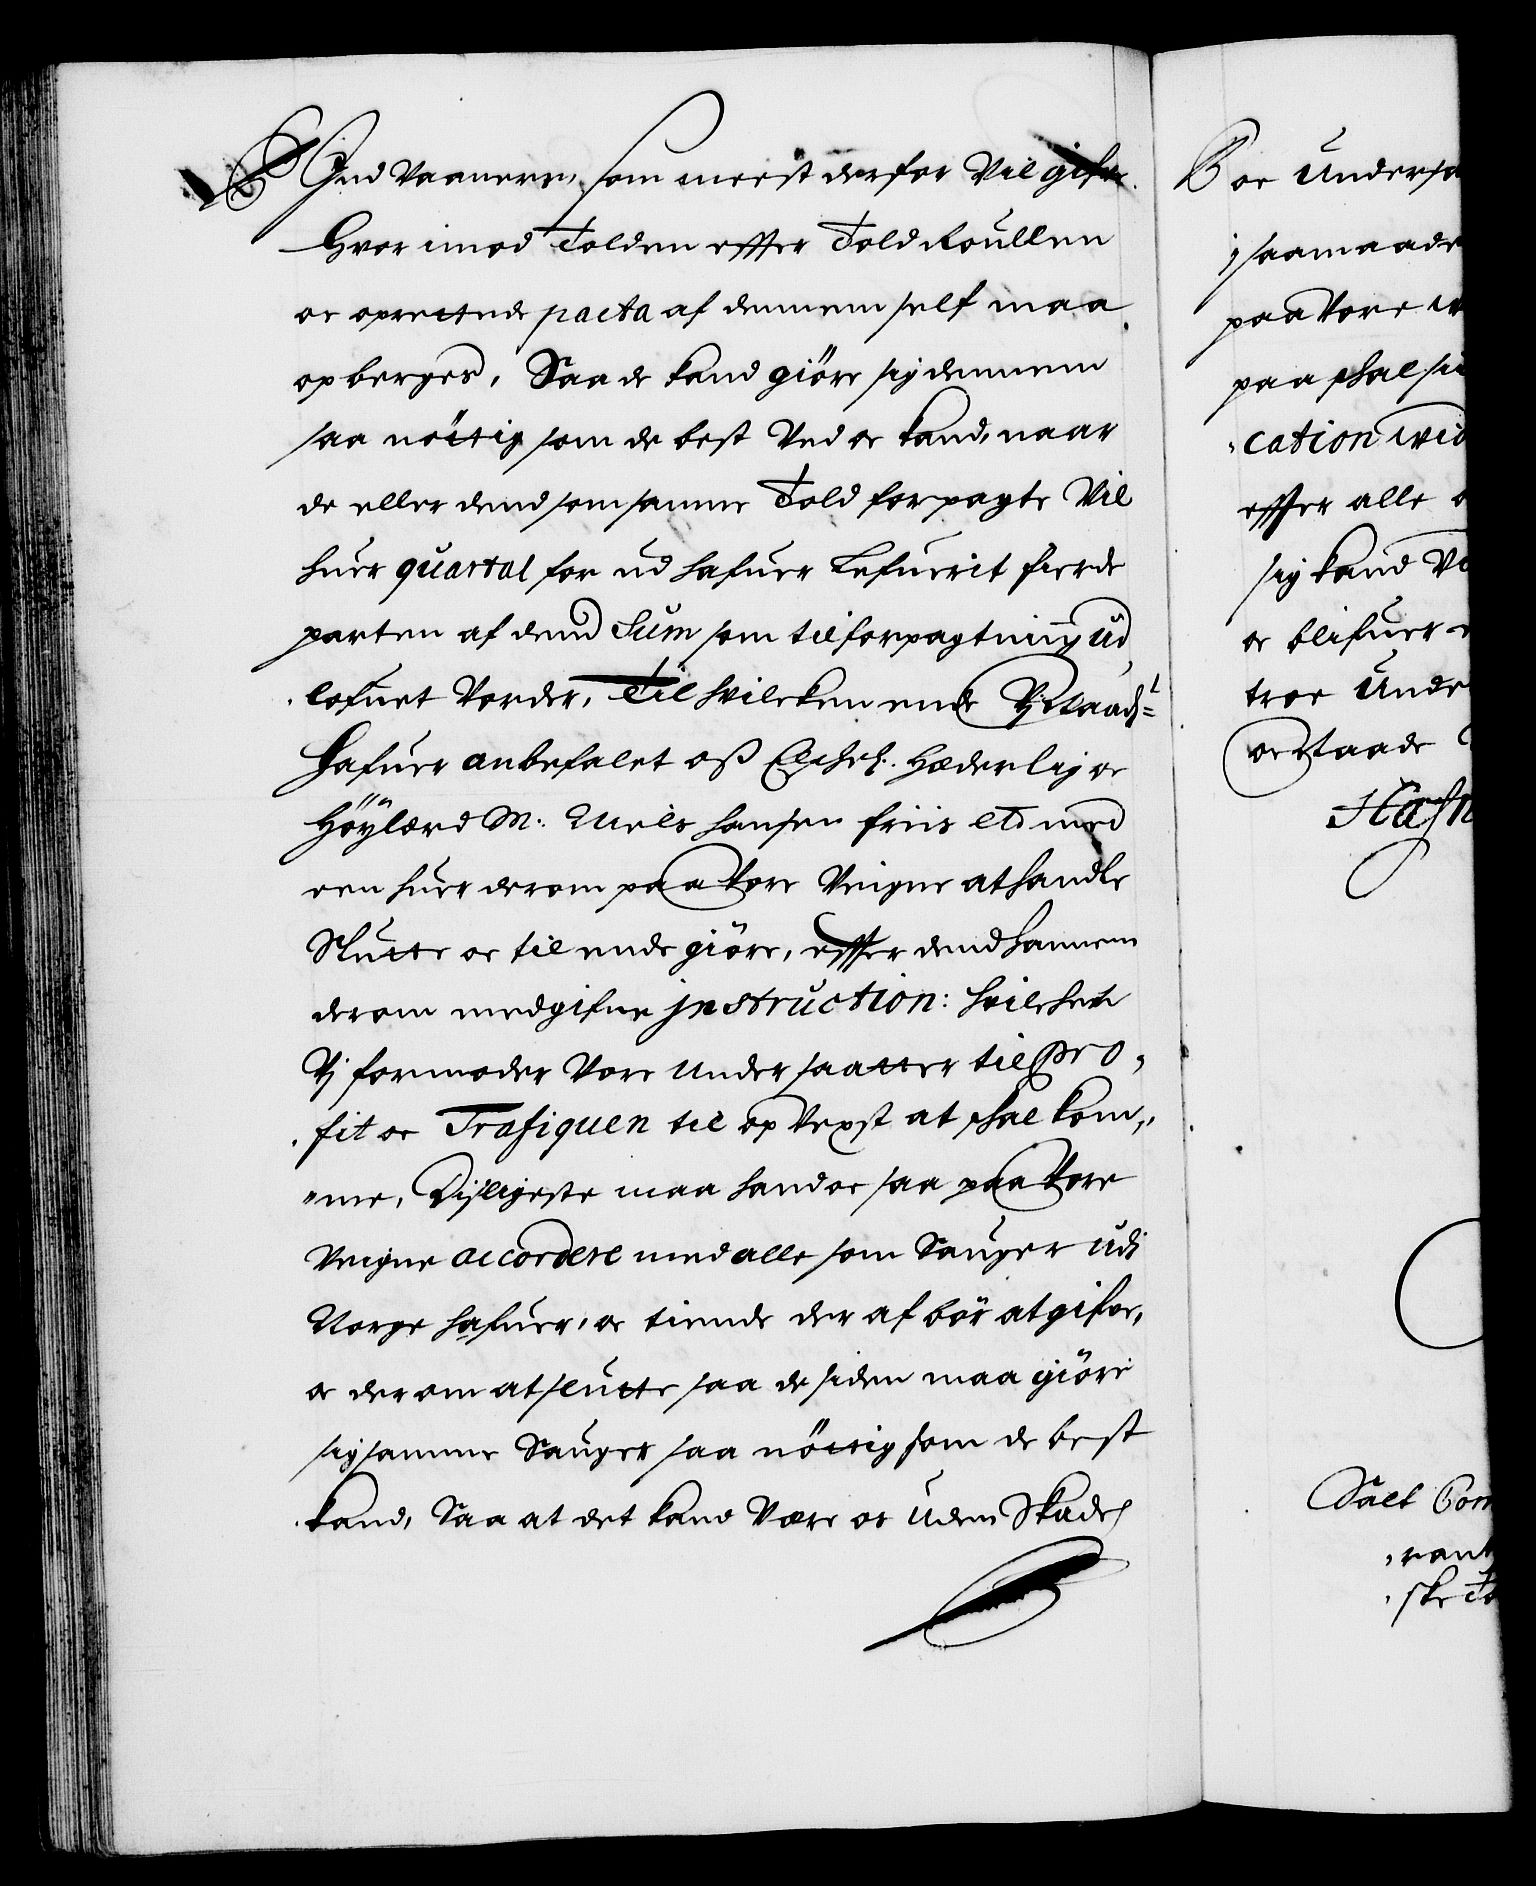 Ind Vaanere, som meest derfor Vil gifve
Hvor imod Tolden effter Told Roullen
oc oprettede pacta af dennem self maa
opberges, Saa de kand giöre sig dennem
saa nöttig som de best Ved oc kand, naar
de eller dend som samme Told forpagte Vil
huer quartal for ud hafuer Lefuerit fierde
parten af dend Sum som til forpagtning ud
lofuet Vorder, Til hvilcken ende Vj
Hafuer anbefalet oß Elschel. Hæderlig oc
Höylærd M: Niels Hansen friis et med
een huer derom paa Vore Veigne at handle
Slutte oc til ende giöre, effter dend hannem
derom medgifne jnstruction: hvilchet
Vj formoder Vore Undersaatter til Pro,
fit oc Trafiquen til op Vext at skal kom,,
"me, Disligeste maa hand oc saa paa Vore
Veigne accordere med alle som Sauger udi
Norge hafuer, oc tiende der af bör at gifve,
oc derom at slutte saa de siden maa giöre
sig samme Sauger saa nöttig som de best
kand, Saa at det kand Være os uden Skade
oc Undersa
j saamaade
paa Vore
paa skal
cation
effter alle
sig kand
oc blifuer
troe Unde
Salt Com